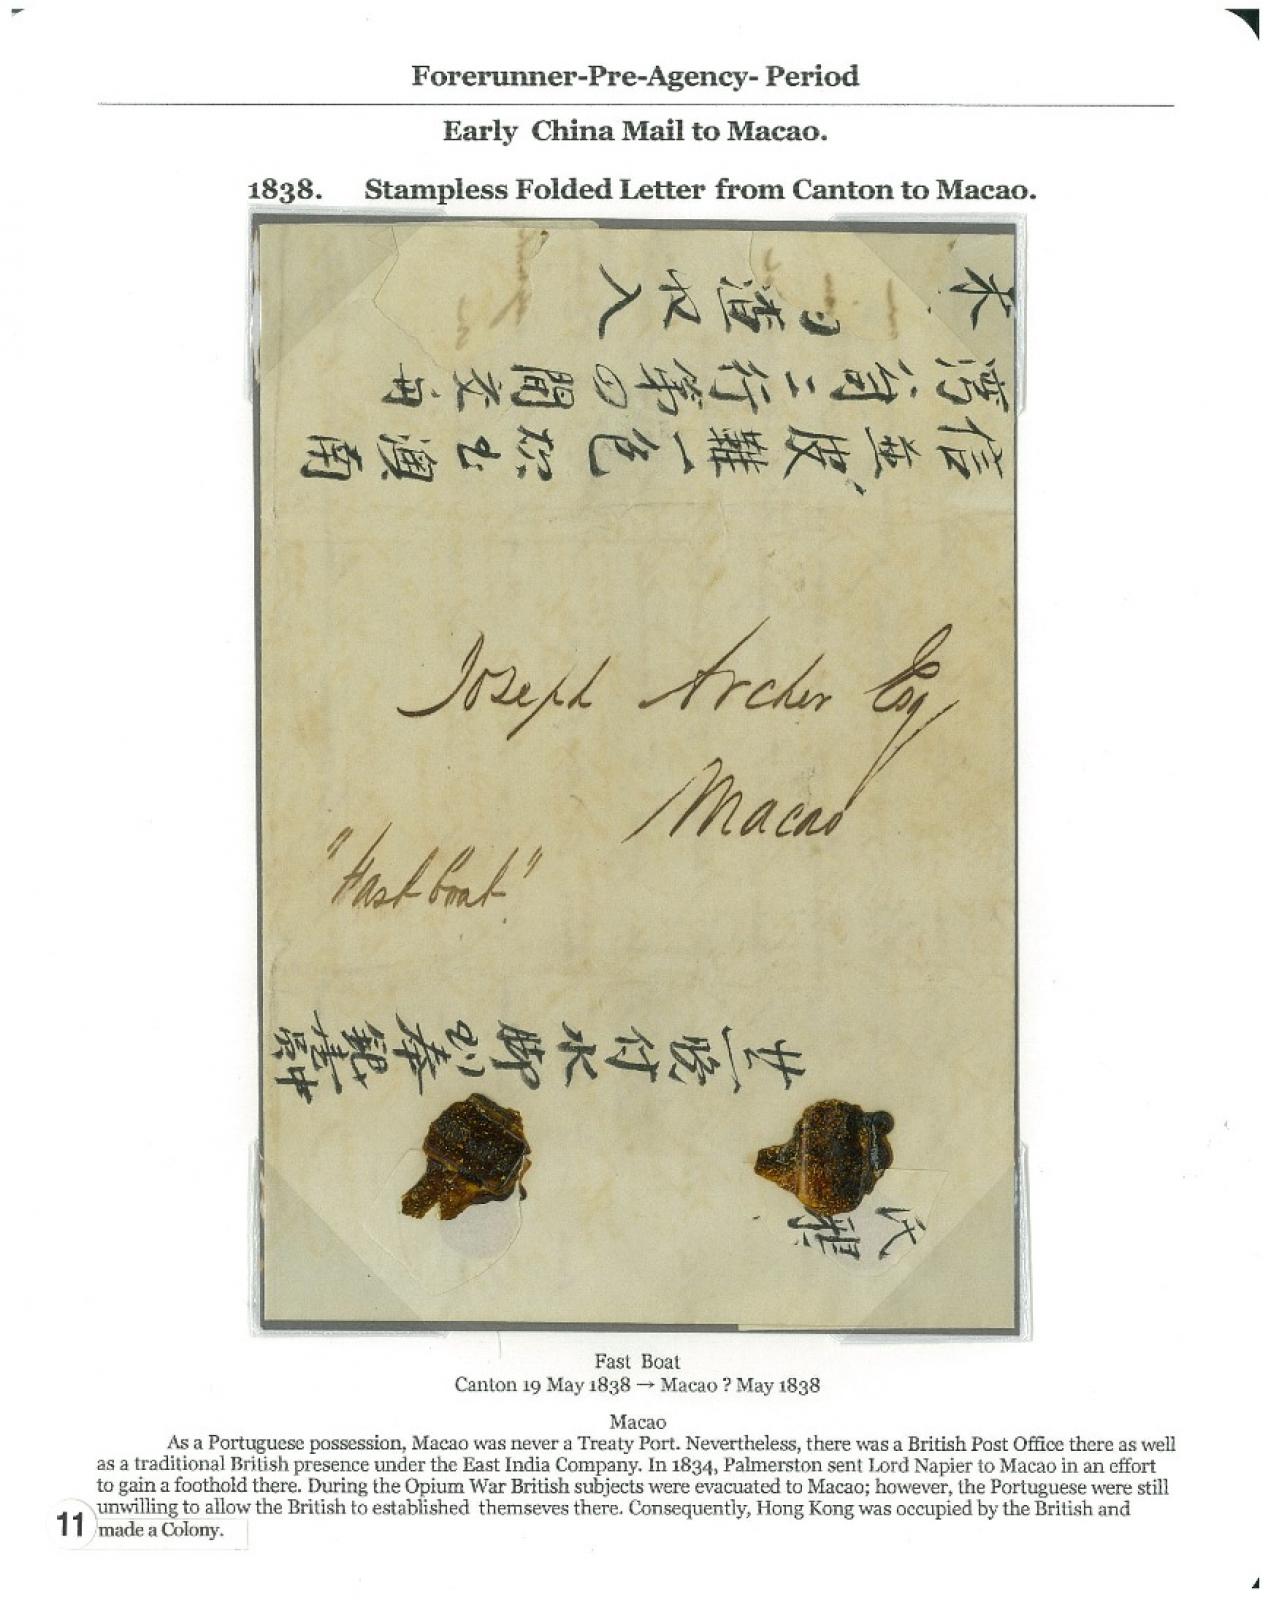 Forerunner-Pre-Agency- Period
Early China Mail to Macao.
1838. Stampless Folded Letter from Canton to Macao.
信並皮鞋一包 澳南
灣公司二行第四間交
渣收入
Joseph Archer Esq
Macao
"Fast boat"
廿一晚付水腳到奉銀壹
Fast Boat
Canton 19 May 1838 → Macao ? May 1838
Macao
As a Portuguese possession, Macao was never a Treaty Port. Nevertheless, there was a British Post Office there as well
as a traditional British presence under the East India Company. In 1834, Palmerston sent Lord Napier to Macao in an effort
to gain a foothold there. During the Opium War British subjects were evacuated to Macao; however, the Portuguese were still
unwilling to allow the British to established themseves there. Consequently, Hong Kong was occupied by the British and
11 made a Colony.